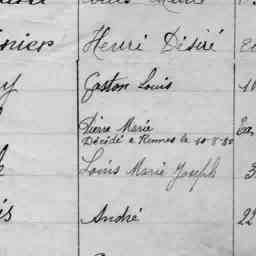 Louis Marie
Henri Désiré
Gaston Louis
Pierre Marie
Décédé à Rennes le 10-8-80
Louis Marie Joseph 3
André 22